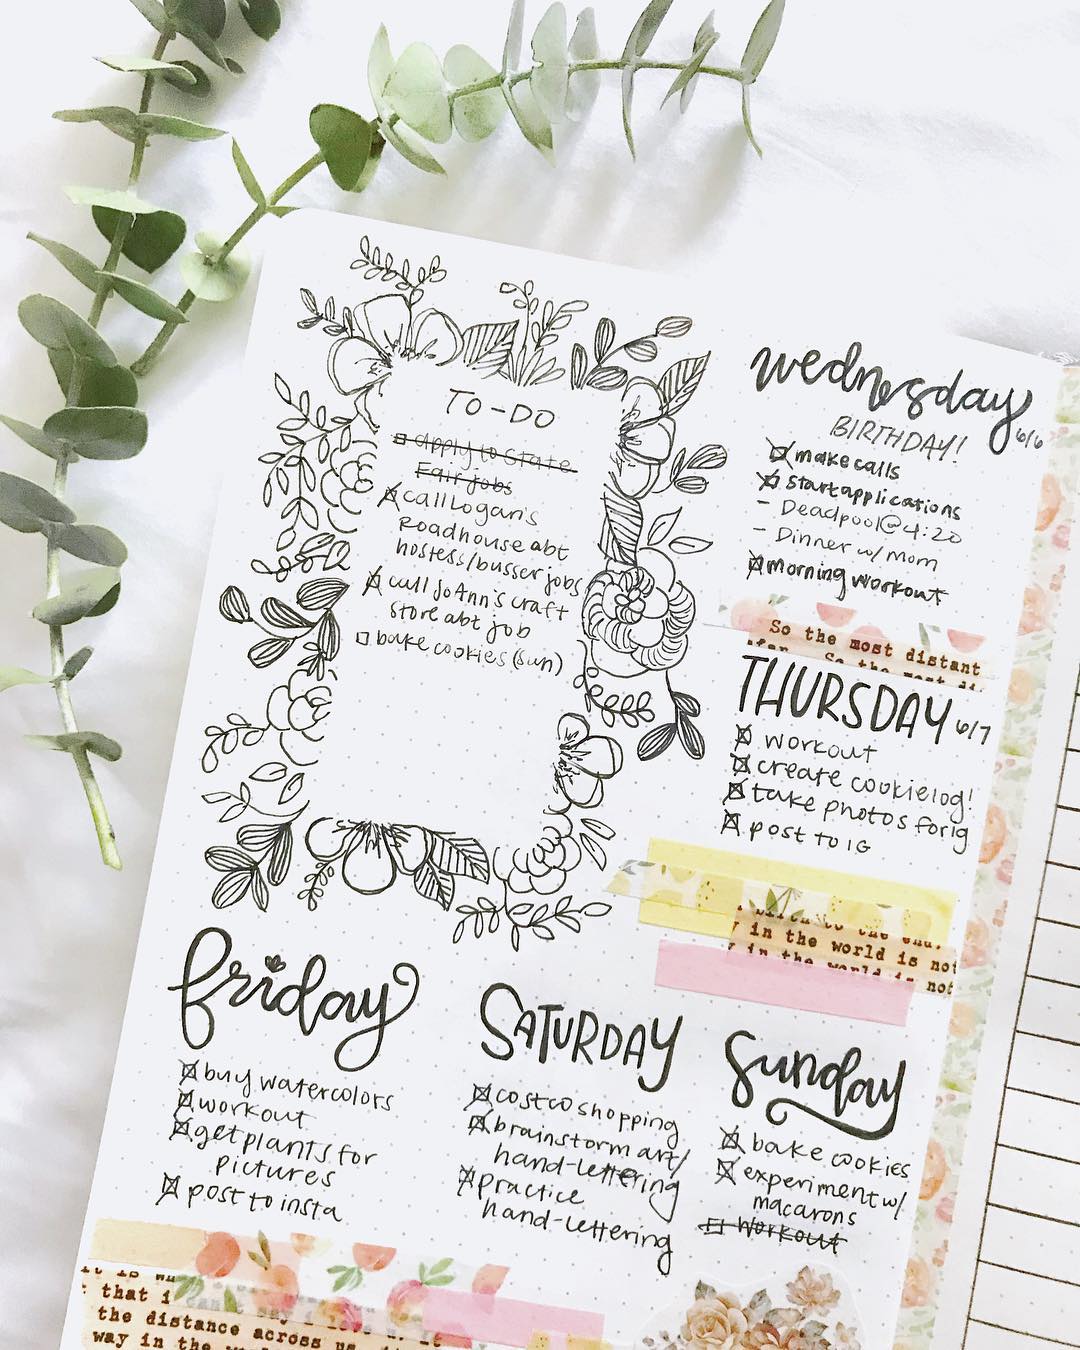 TO-DO
apply to State
Fair jobs
call Logan's
Roadhouse abt
hostess/busser jobs
call JoAnn's craft
store abt job
bake cookies (sun)
wednesday
BIRTHDAY! 6/6
make calls
start applications
- Deadpool @ 4:20
- Dinner w/ mom
morning workout
So the most distant
So the most di
THURSDAY 6/7
workout
create cookielog!
take photos for ig
post to IG
to the end.
y in the world is not
y in the world is not
friday
buy watercolors
workout
get plants for
pictures
post to insta
SATURDAY
costco shopping
brainstorm art/
hand-lettering
practice
hand-lettering
Sunday
bake cookies
experiment w/
macarons
workout
it is
that i can't say i
the distance across us
way in the